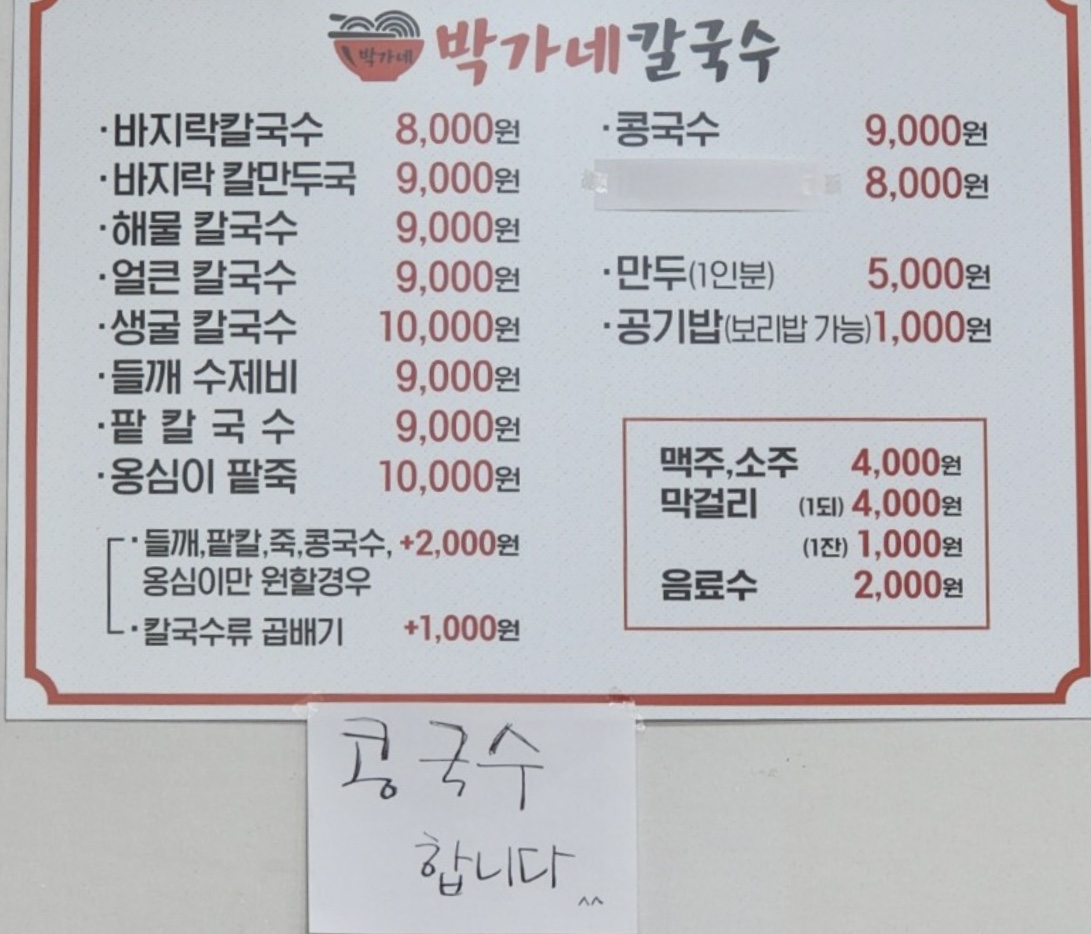 박가네
박가네칼국수
·바지락칼국수 8,000원
·바지락 칼만두국 9,000원
·해물 칼국수 9,000원
·얼큰 칼국수 9,000원
·생굴 칼국수 10,000원
·들깨 수제비 9,000원
·팥 칼 국 수 9,000원
·옹심이 팥죽 10,000원
·들깨,팥칼,죽,콩국수, +2,000원
옹심이만 원할경우
·칼국수류 곱배기 +1,000원
·콩국수 9,000원
8,000원
·만두(1인분) 5,000원
·공기밥(보리밥 가능) 1,000원
맥주,소주 4,000원
막걸리 (1되) 4,000원
(1잔) 1,000원
음료수 2,000원
콩국수
합니다 ^^